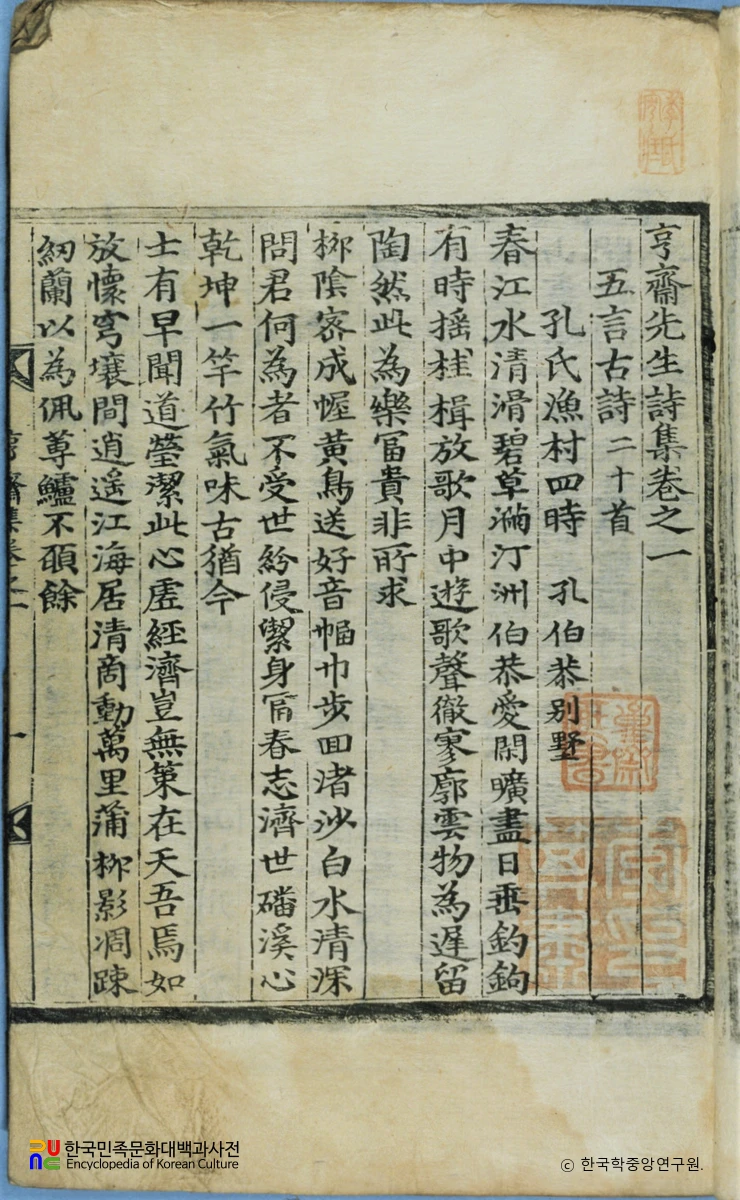 亨齋先生詩集卷之一
五言古詩 二十首
孔氏漁村四時 孔伯恭別墅
春江水清滑碧草滿汀洲伯恭愛閑曠盡日垂釣鉤
有時搖桂楫放歌月中遊歌聲徹寥廓雲物為遲留
陶然此為樂冨貴非所求
柳陰密成幄黃鳥送好音幅巾步回渚沙白水清深
問君何為者不受世紛侵潔身甯春志濟世磻溪心
乾坤一竿竹氣味古猶今
士有早聞道瑩潔此心虛經濟豈無策在天吾焉如
放懷穹壤間逍遙江海居清商動萬里蒲柳影凋踈
紉蘭以為佩蓴鱸不顧餘
亨齋集卷之一
一
한국민족문화대백과사전
Encyclopedia of Korean Culture
© 한국학중앙연구원.